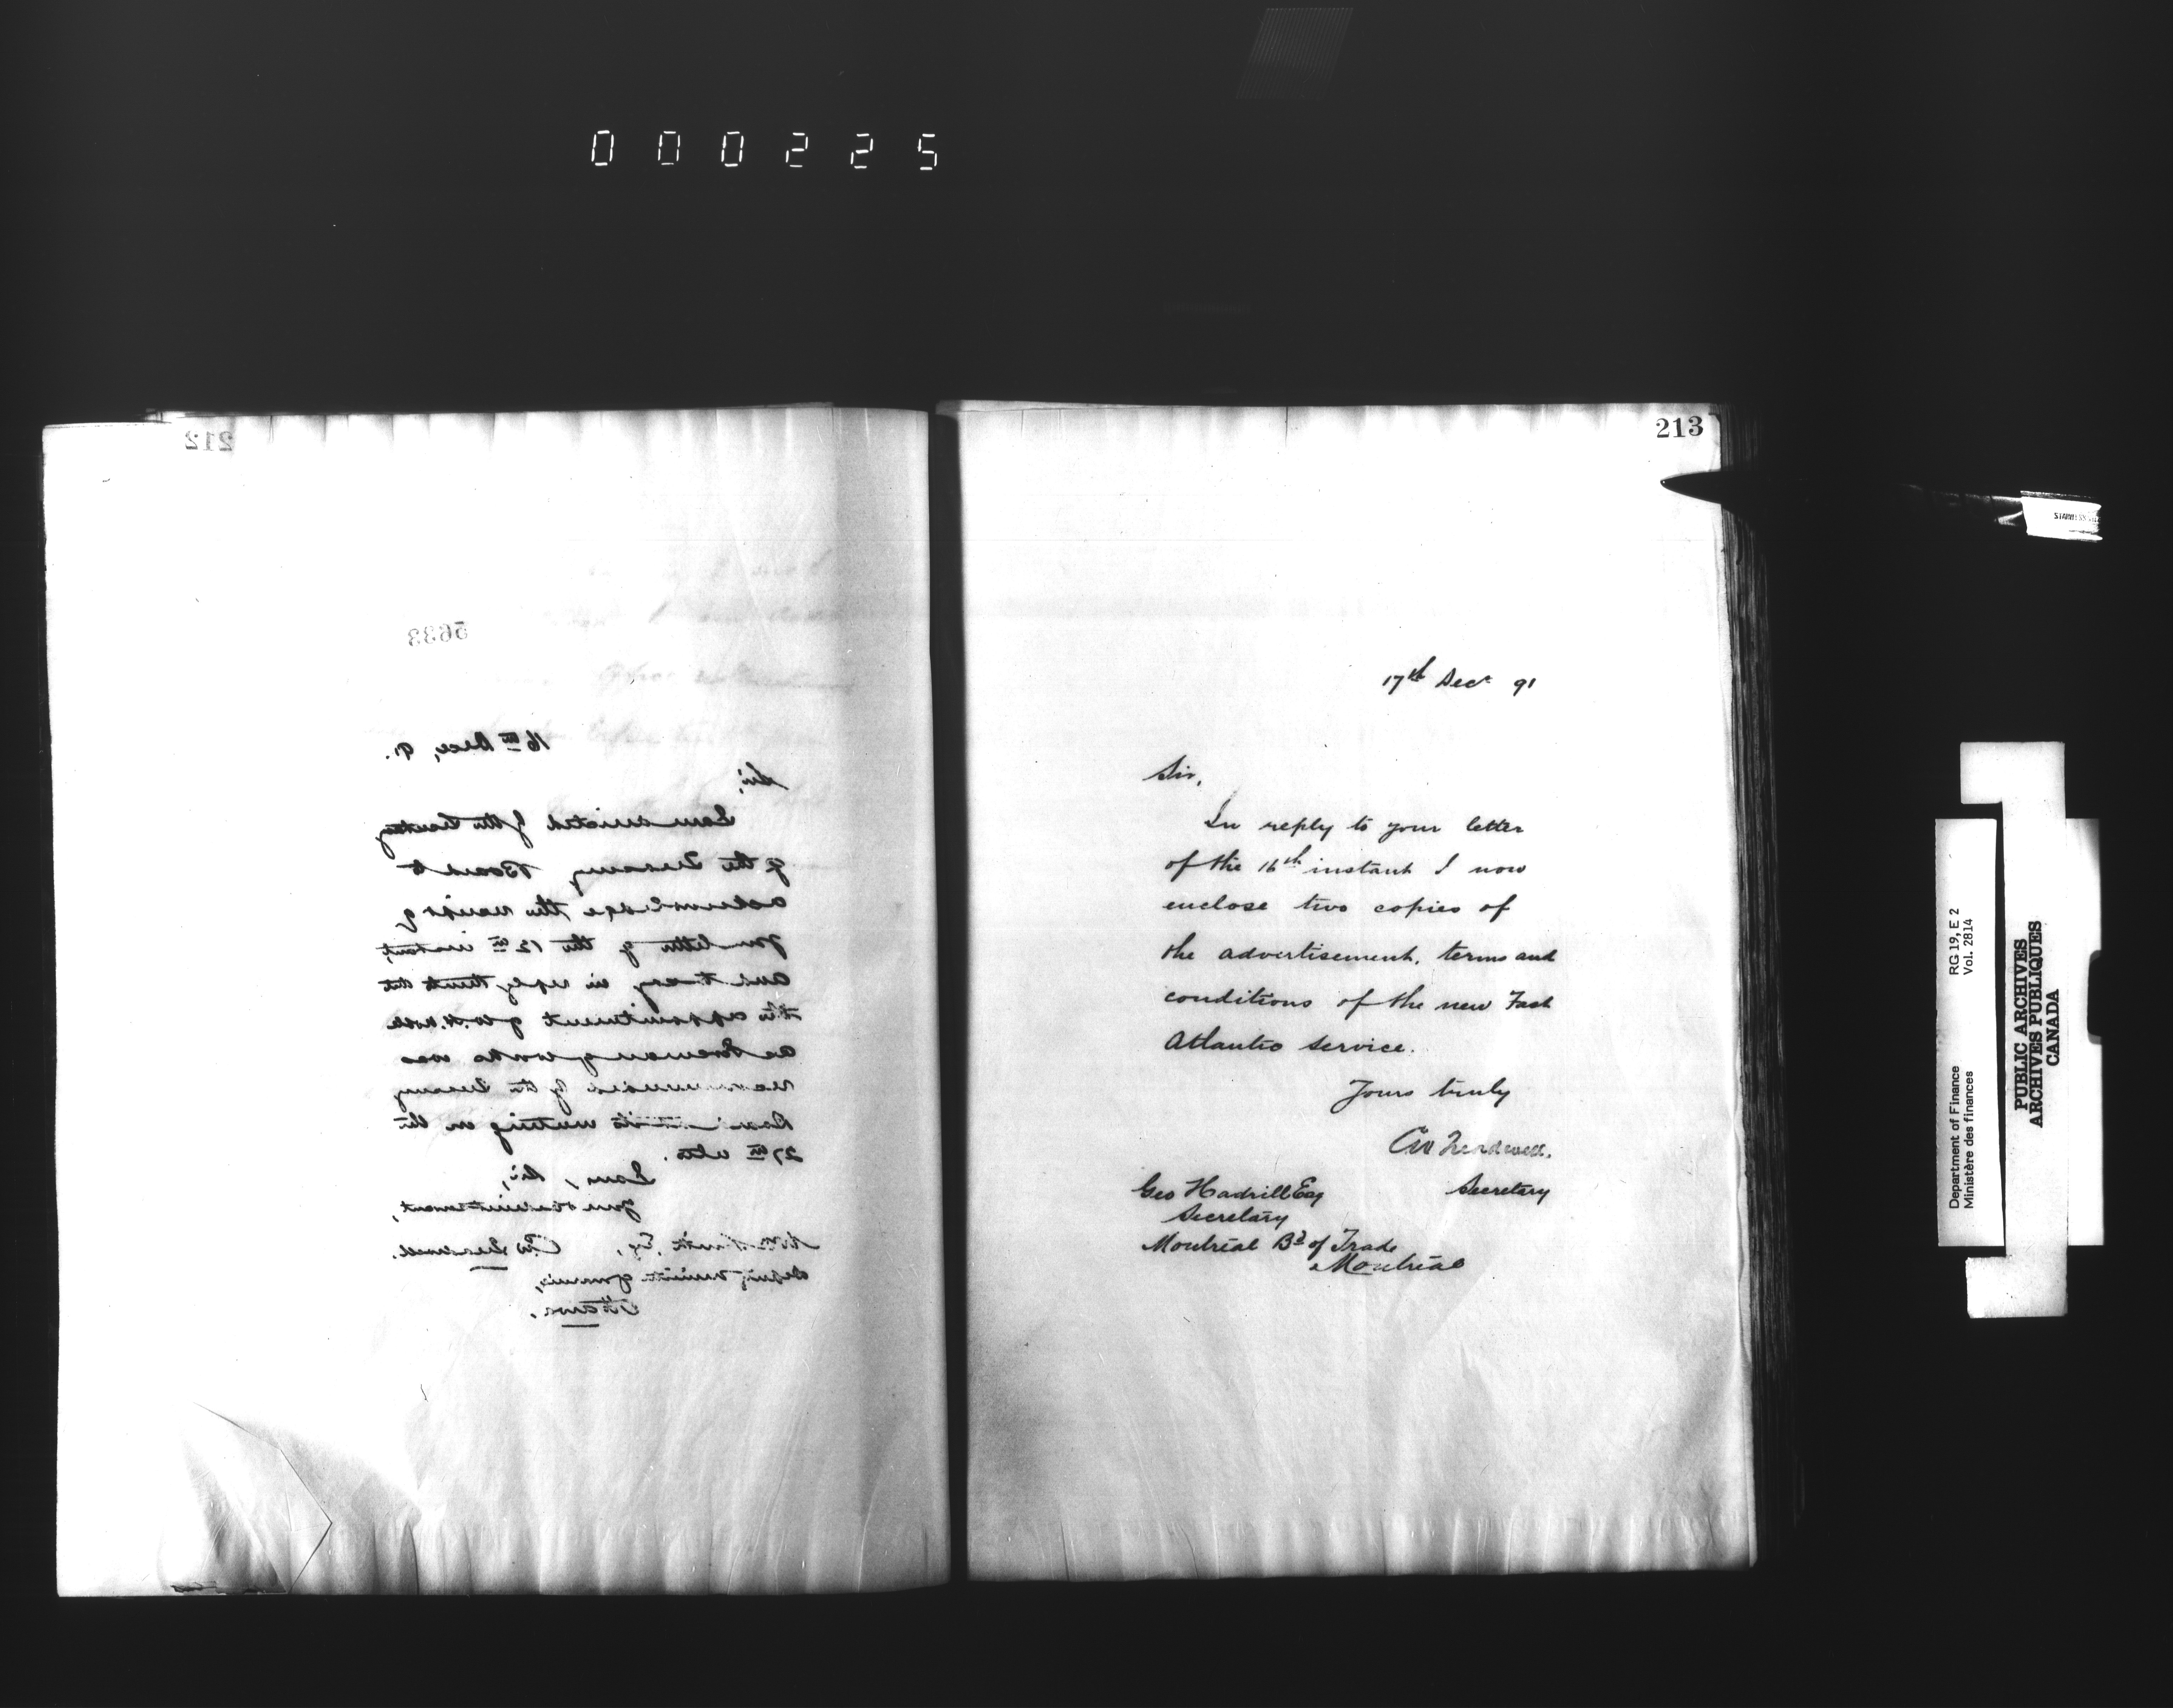 000225
212
5633
16th Dece, 91.
Sir,
I am directed by the Secretary
of the Treasury Board to
acknowledge the receipt of
your letter of the 12th instant,
and to say in reply thereto that
the appointment of W. H.
as Foreman of works was
recommended by the Treasury
Board at its meeting on the
27th ulto.
I am, Sir,
your obedient servant,
Wm Smith Esq,
Deputy Minister of Marine,
Ottawa.
213
17th Decr 91
Sir,
In reply to your letter
of the 16th instant I now
enclose two copies of
the advertisement, terms and
conditions of the new Fast
Atlantic service.
Yours truly
CW Treadwell.
Secretary
Geo Hadrill Esq
Secretary
Montreal Bd of Trade
Montreal
Department of Finance
Ministère des finances
RG 19, E 2
Vol. 2814
PUBLIC ARCHIVES
ARCHIVES PUBLIQUES
CANADA